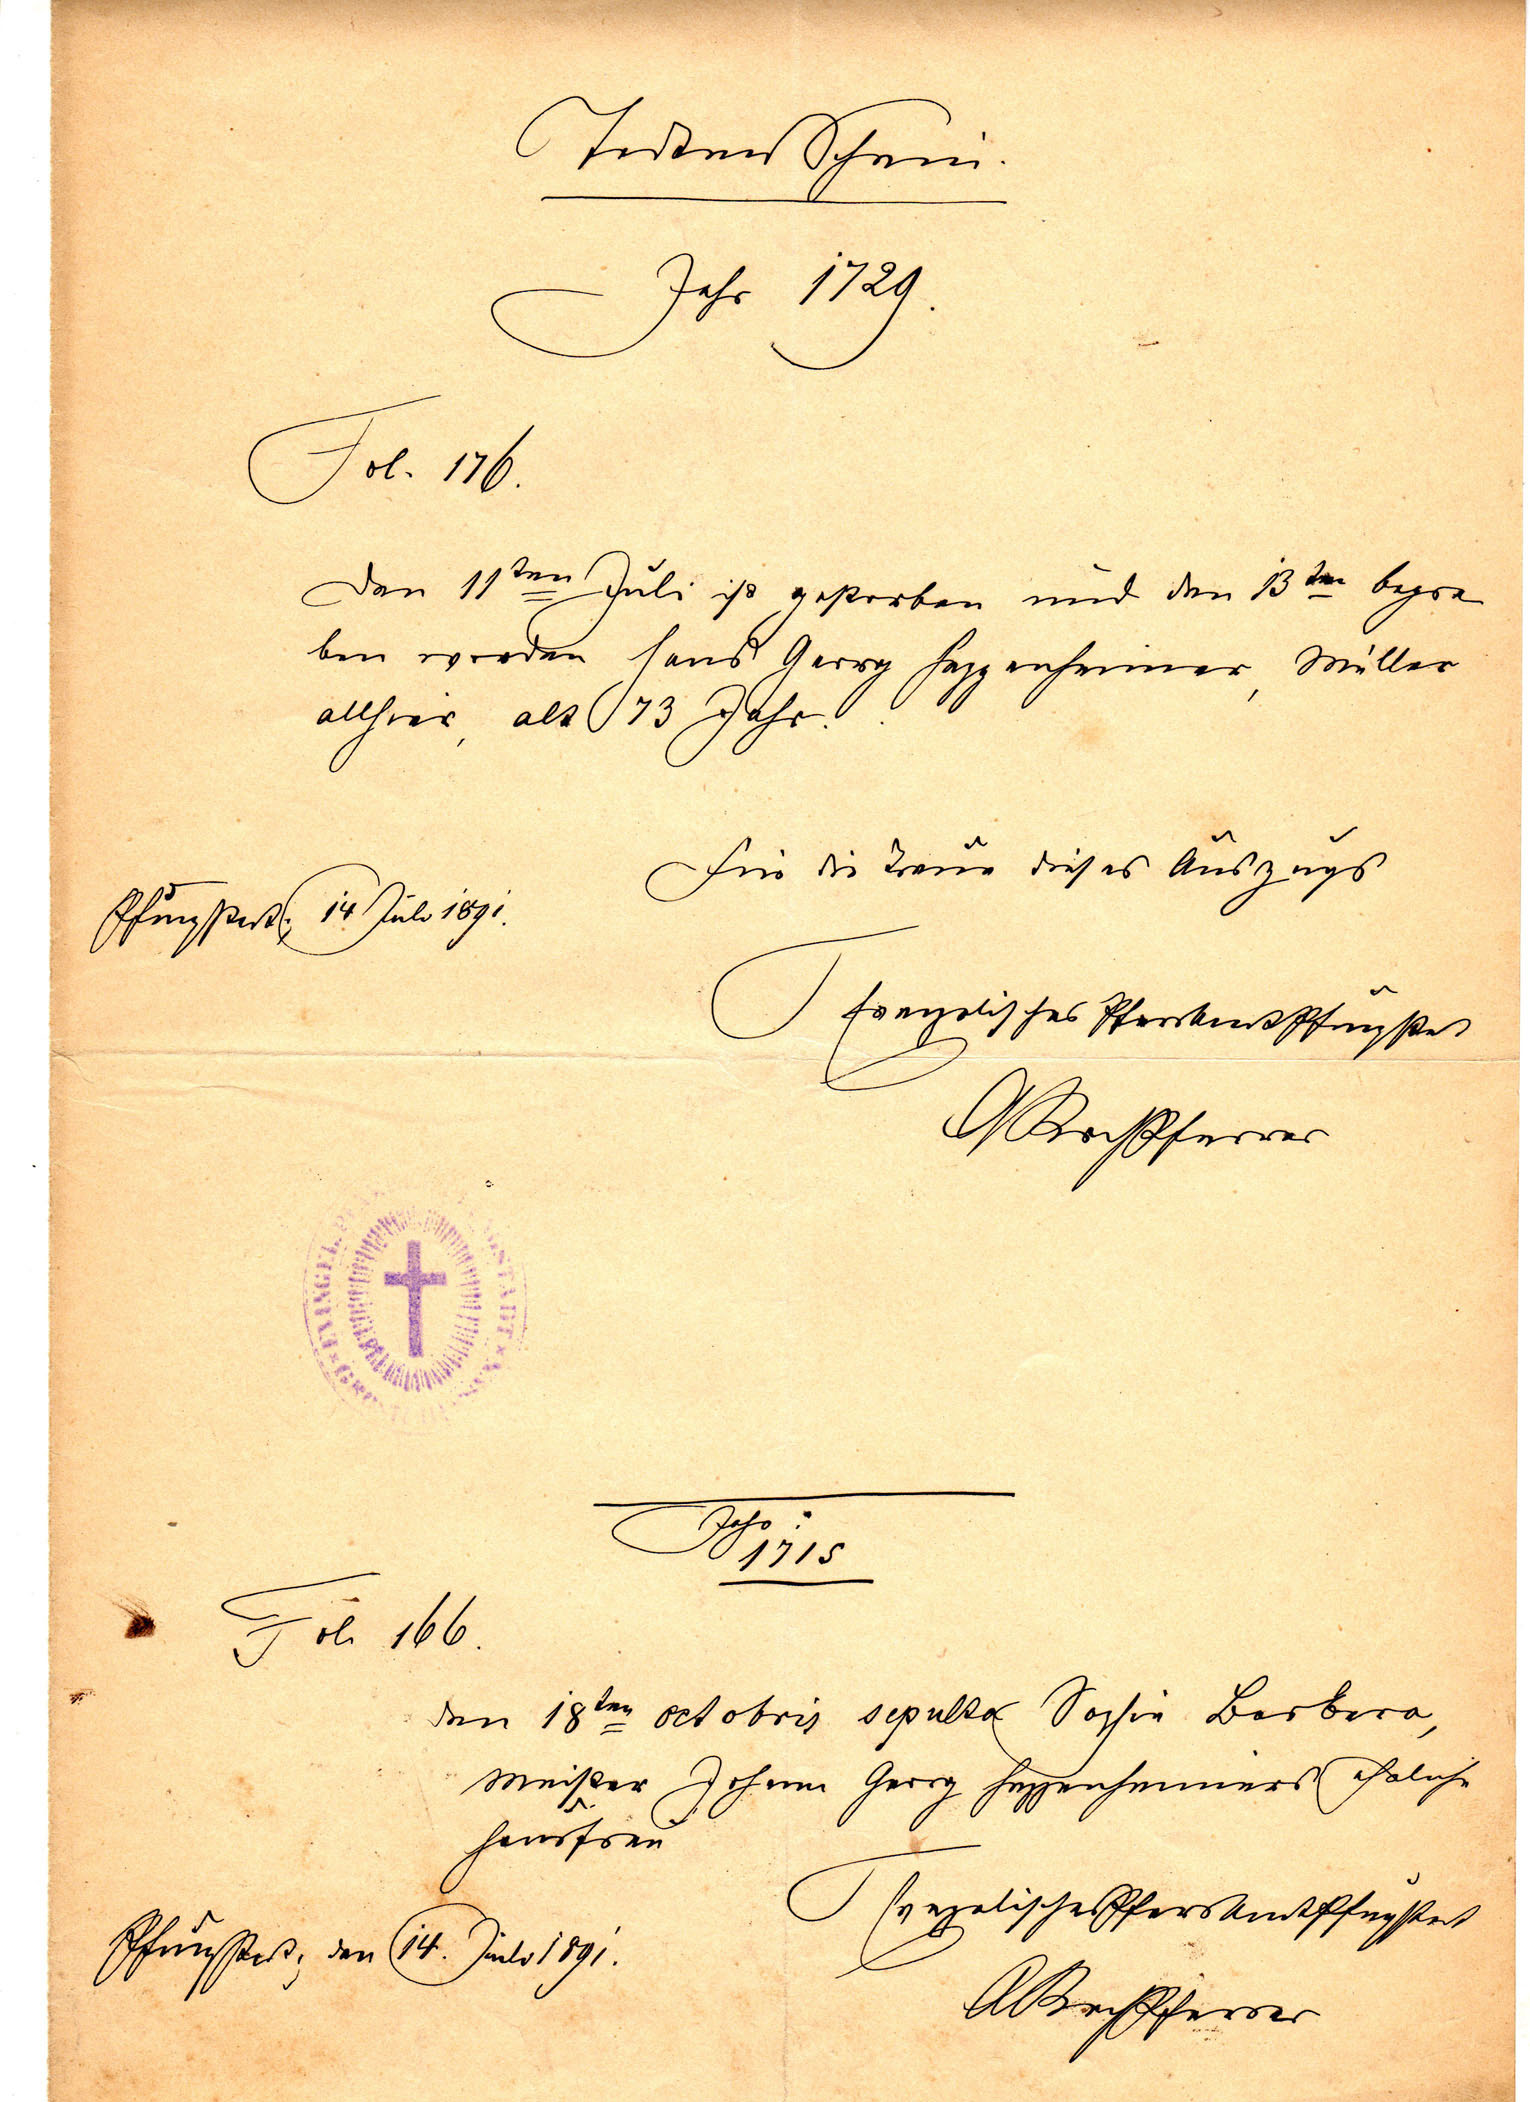 Todtenschein.
Jahr 1729.
Fol. 176.
Den 11ten Juli ist gestorben und den 13ten begra
ben worden Hans Georg Heppenheimer, Müller
allhier, alt 73 Jahr.
Für die Treue dieses Auszugs
Pfungstadt, 14 Juli 1891.
Evangelisches Pfarramt Pfungstadt
Pfarrer
EVANGEL.
Jahr:
1715
Fol. 166.
den 18ten octobris sepulta Sophia Barbara,
Meister Johann Georg Heppenheimers eheliche
Hausfrau
Evangelisches Pfarramt Pfungstadt
Pfungstadt, den 14. Juli 1891.
Pfarrer